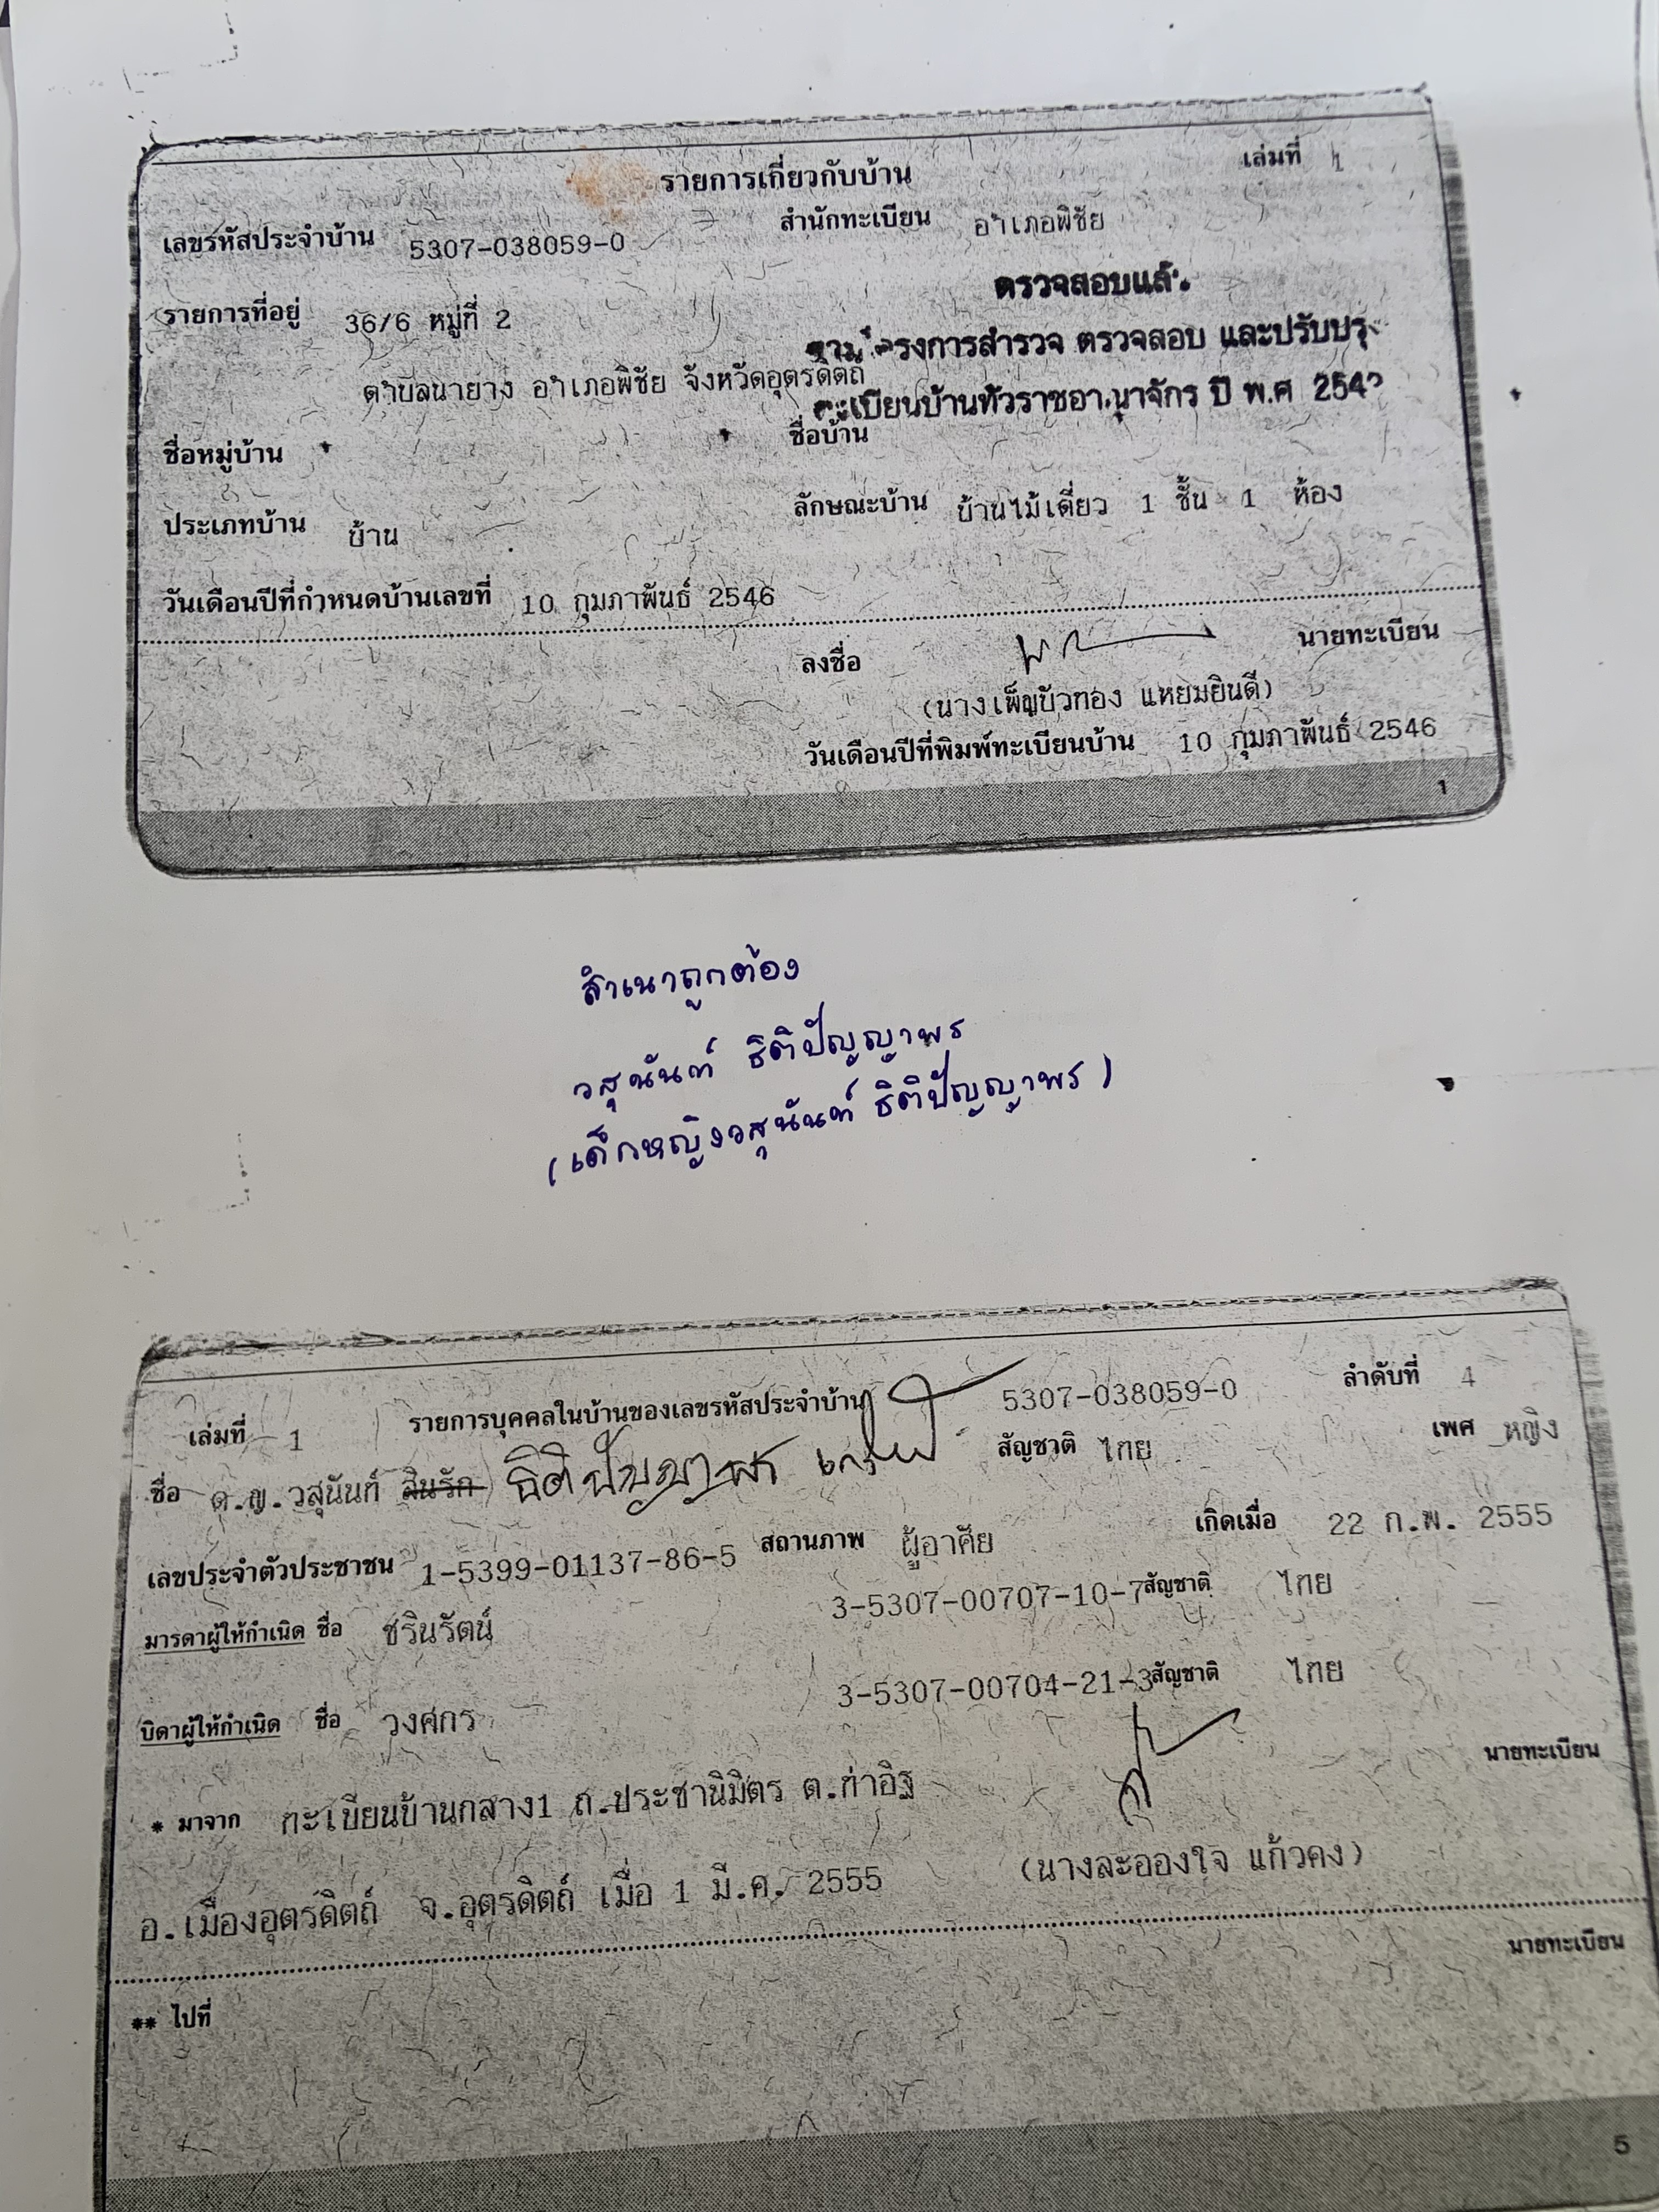 รายการเกี่ยวกับบ้าน เล่มที่ 1
เลขรหัสประจำบ้าน 5307-038059-0 สำนักทะเบียน อำเภอพิชัย
ตรวจสอบแล้ว
รายการที่อยู่ 36/6 หมู่ที่ 2
โครงการสำรวจ ตรวจสอบ และปรับปรุง
ตำบลนายาง อำเภอพิชัย จังหวัดอุตรดิตถ์
ทะเบียนบ้านทั่วราชอาณาจักร ปี พ.ศ
ชื่อหมู่บ้าน ชื่อบ้าน
ประเภทบ้าน บ้าน ลักษณะบ้าน บ้านไม้เดี่ยว 1 ชั้น 1 ห้อง
วันเดือนปีที่กำหนดบ้านเลขที่ 10 กุมภาพันธ์ 2546
ลงชื่อ นายทะเบียน
(นางเพ็ญบัวทอง แหยมยินดี)
วันเดือนปีที่พิมพ์ทะเบียนบ้าน 10 กุมภาพันธ์ 2546
1
สำเนาถูกต้อง
วสุนันท์ ธิติปัญญาพร
(เด็กหญิงวสุนันท์ ธิติปัญญาพร)
เล่มที่ 1 รายการบุคคลในบ้านของเลขรหัสประจำบ้าน 5307-038059-0 ลำดับที่ 4
ชื่อ ด.ญ.วสุนันท์ สินรัก ธิติปัญญาพร สัญชาติ ไทย เพศ หญิง
เลขประจำตัวประชาชน 1-5399-01137-86-5 สถานภาพ ผู้อาศัย เกิดเมื่อ 22 ก.พ. 2555
มารดาผู้ให้กำเนิด ชื่อ ชรินรัตน์ 3-5307-00707-10-7 สัญชาติ ไทย
บิดาผู้ให้กำเนิด ชื่อ วงศกร 3-5307-00704-21-3 สัญชาติ ไทย
* มาจาก ทะเบียนบ้านกลาง1 ถ.ประชานิมิตร ต.ท่าอิฐ นายทะเบียน
อ.เมืองอุตรดิตถ์ จ.อุตรดิตถ์ เมื่อ 1 มี.ค. 2555 (นางละอองใจ แก้วคง)
นายทะเบียน
** ไปที่
5